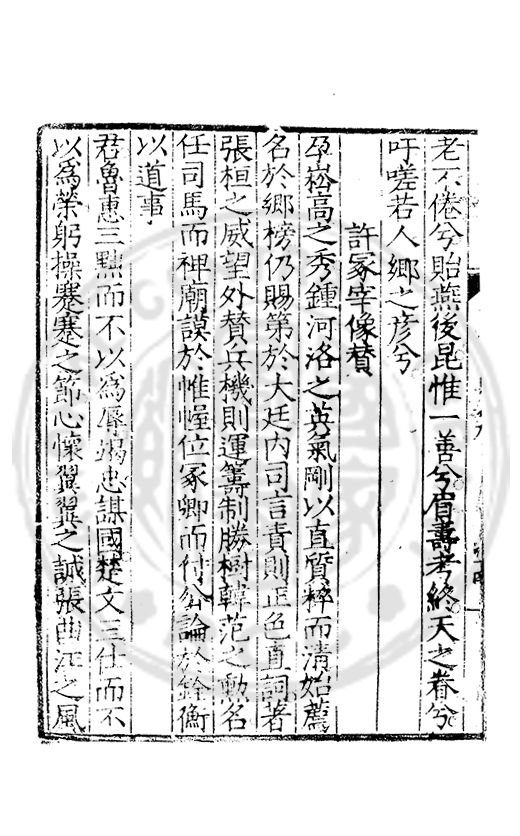 老不倦兮貽燕後昆惟一善兮眉壽考終天之眷兮
吁嗟若人鄉之彥兮
許冢宰像贊
孕崧高之秀鍾河洛之英氣剛以直質粹而清始薦
名於鄉榜仍賜第於大廷內司言責則正色直詞著
張桓之威望外賛兵機則運籌制勝樹韓范之勳名
任司馬而裨廟謨於惟幄位冢卿而付公論於銓衡
以道事
君魯惠三黜而不以爲辱竭忠謀國楚文三仕而不
以爲榮躬操蹇蹇之節心懷翼翼之誠張曲江之風